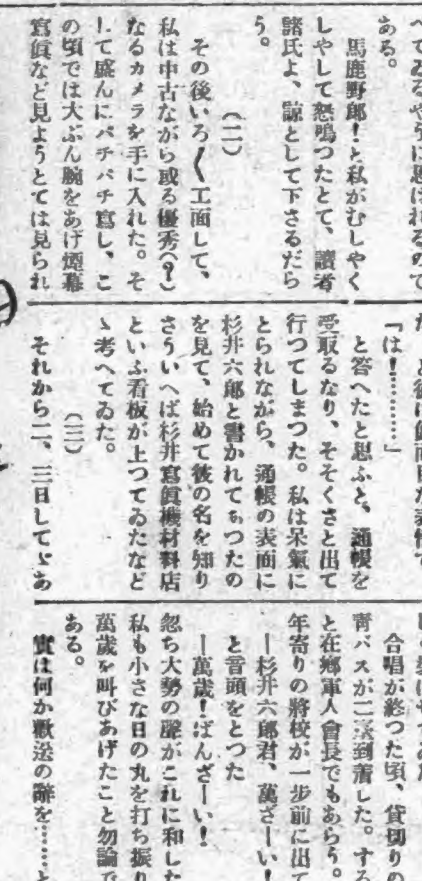 へてゐるやうに思はれるので
ある。
馬鹿野郎！と私がむしやく
しやして怒鳴つたとて、讀者
諸氏よ、諒として下さるだら
う。
（二）
その後いろ〱工面して、
私は中古ながら或る優秀（？）
なるカメラを手に入れた。そ
して盛んにパチパチ寫し、こ
の頃では大ぶん腕をあげ煙幕
寫眞など見ようとては見られ
「は！………」
と答へたと思ふと、通帳を
受取るなり、そそくさと出て
行つてしまつた。私は呆氣に
とられながら、通帳の表面に
杉井六郎と書かれてあつたの
を見て、始めて彼の名を知り
さういへば杉井寫眞機材料店
といふ看板が上つてゐたなど
ゝ考へてゐた。
（三）
それから二、三日してゞあ
合唱が終つた頃、貸切りの
青バスが二臺到着した。する
と在郷軍人會長でもあらう。
年寄りの將校が一歩前に出て
―杉井六郎君、萬ざーい！
と音頭をとつた
―萬歳！ばんざーい！
忽ち大勢の聲がこれに和した
私も小さな日の丸を打ち振り
萬歳を叫びあげたこと勿論で
ある。
實は何か歡送の辭を……と